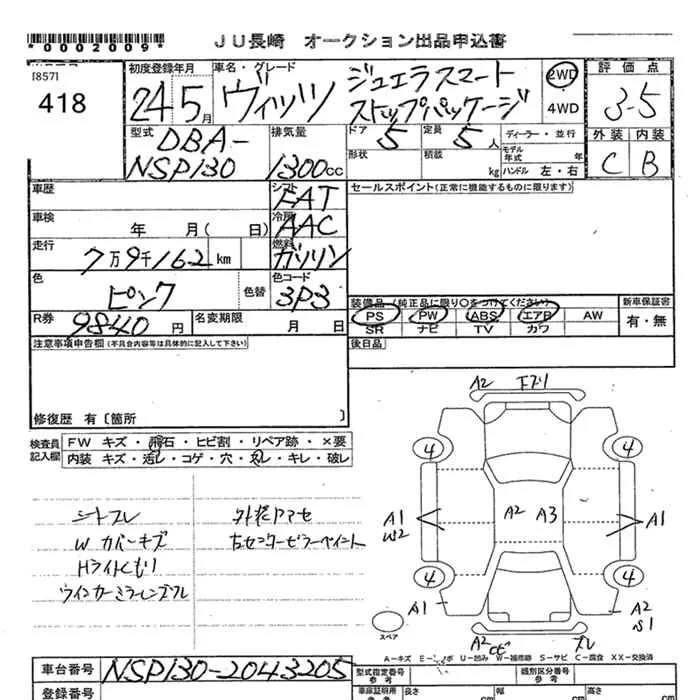 *0002009* JU長崎 オークション出品申込書
[857]
418
初度登録年月 車名・グレード 評価点
24年5月 ヴィッツ ジュエラスマート ストップパッケージ 2WD 4WD 3-5
型式 排気量 ドア 定員 ディーラー・並行 外装 内装
DBA-NSP130 1300cc 5 5人 C B
形状 積載 kg モデル年式 年 ハンドル 左・右
車歴 シフト FAT セールスポイント(正常に機能するものに限ります)
車検 年 月(日) 冷房 AAC
走行 7万9千162km 燃料 ガソリン
色 ピンク 色替 色コード 3P3
装備品(純正品に限り○をつけてください) 新車保証書
PS PW ABS エアB AW 有・無
SR ナビ TV カワ
R券 9840円 名変期限 月 日
後日品
注意事項申告欄(不具合内容等は具体的に記入して下さい)
修復歴 有〔箇所 〕
検査員記入欄 FW キズ・飛石・ヒビ割・リペア跡・×要
内装 キズ・汚レ・コゲ・穴・スレ・キレ・破レ
シートスレ 外装アマセ
Wカバーキズ 右センターピラーペイント
Hライトくもり
ウインカーミラーレンズスレ
A2
4 4
A1 W2 A2 A3 A1
4 4
A1 A2 S1
スペア A2 スレ
A-キズ U-凹み W-補修跡 S-サビ C-腐食 XX-交換済
車台番号 NSP130-2043205 型式指定番号 参考 類別区分番号 参考
登録番号 車庫証明用 参考 長さ cm 幅 cm 高さ cm